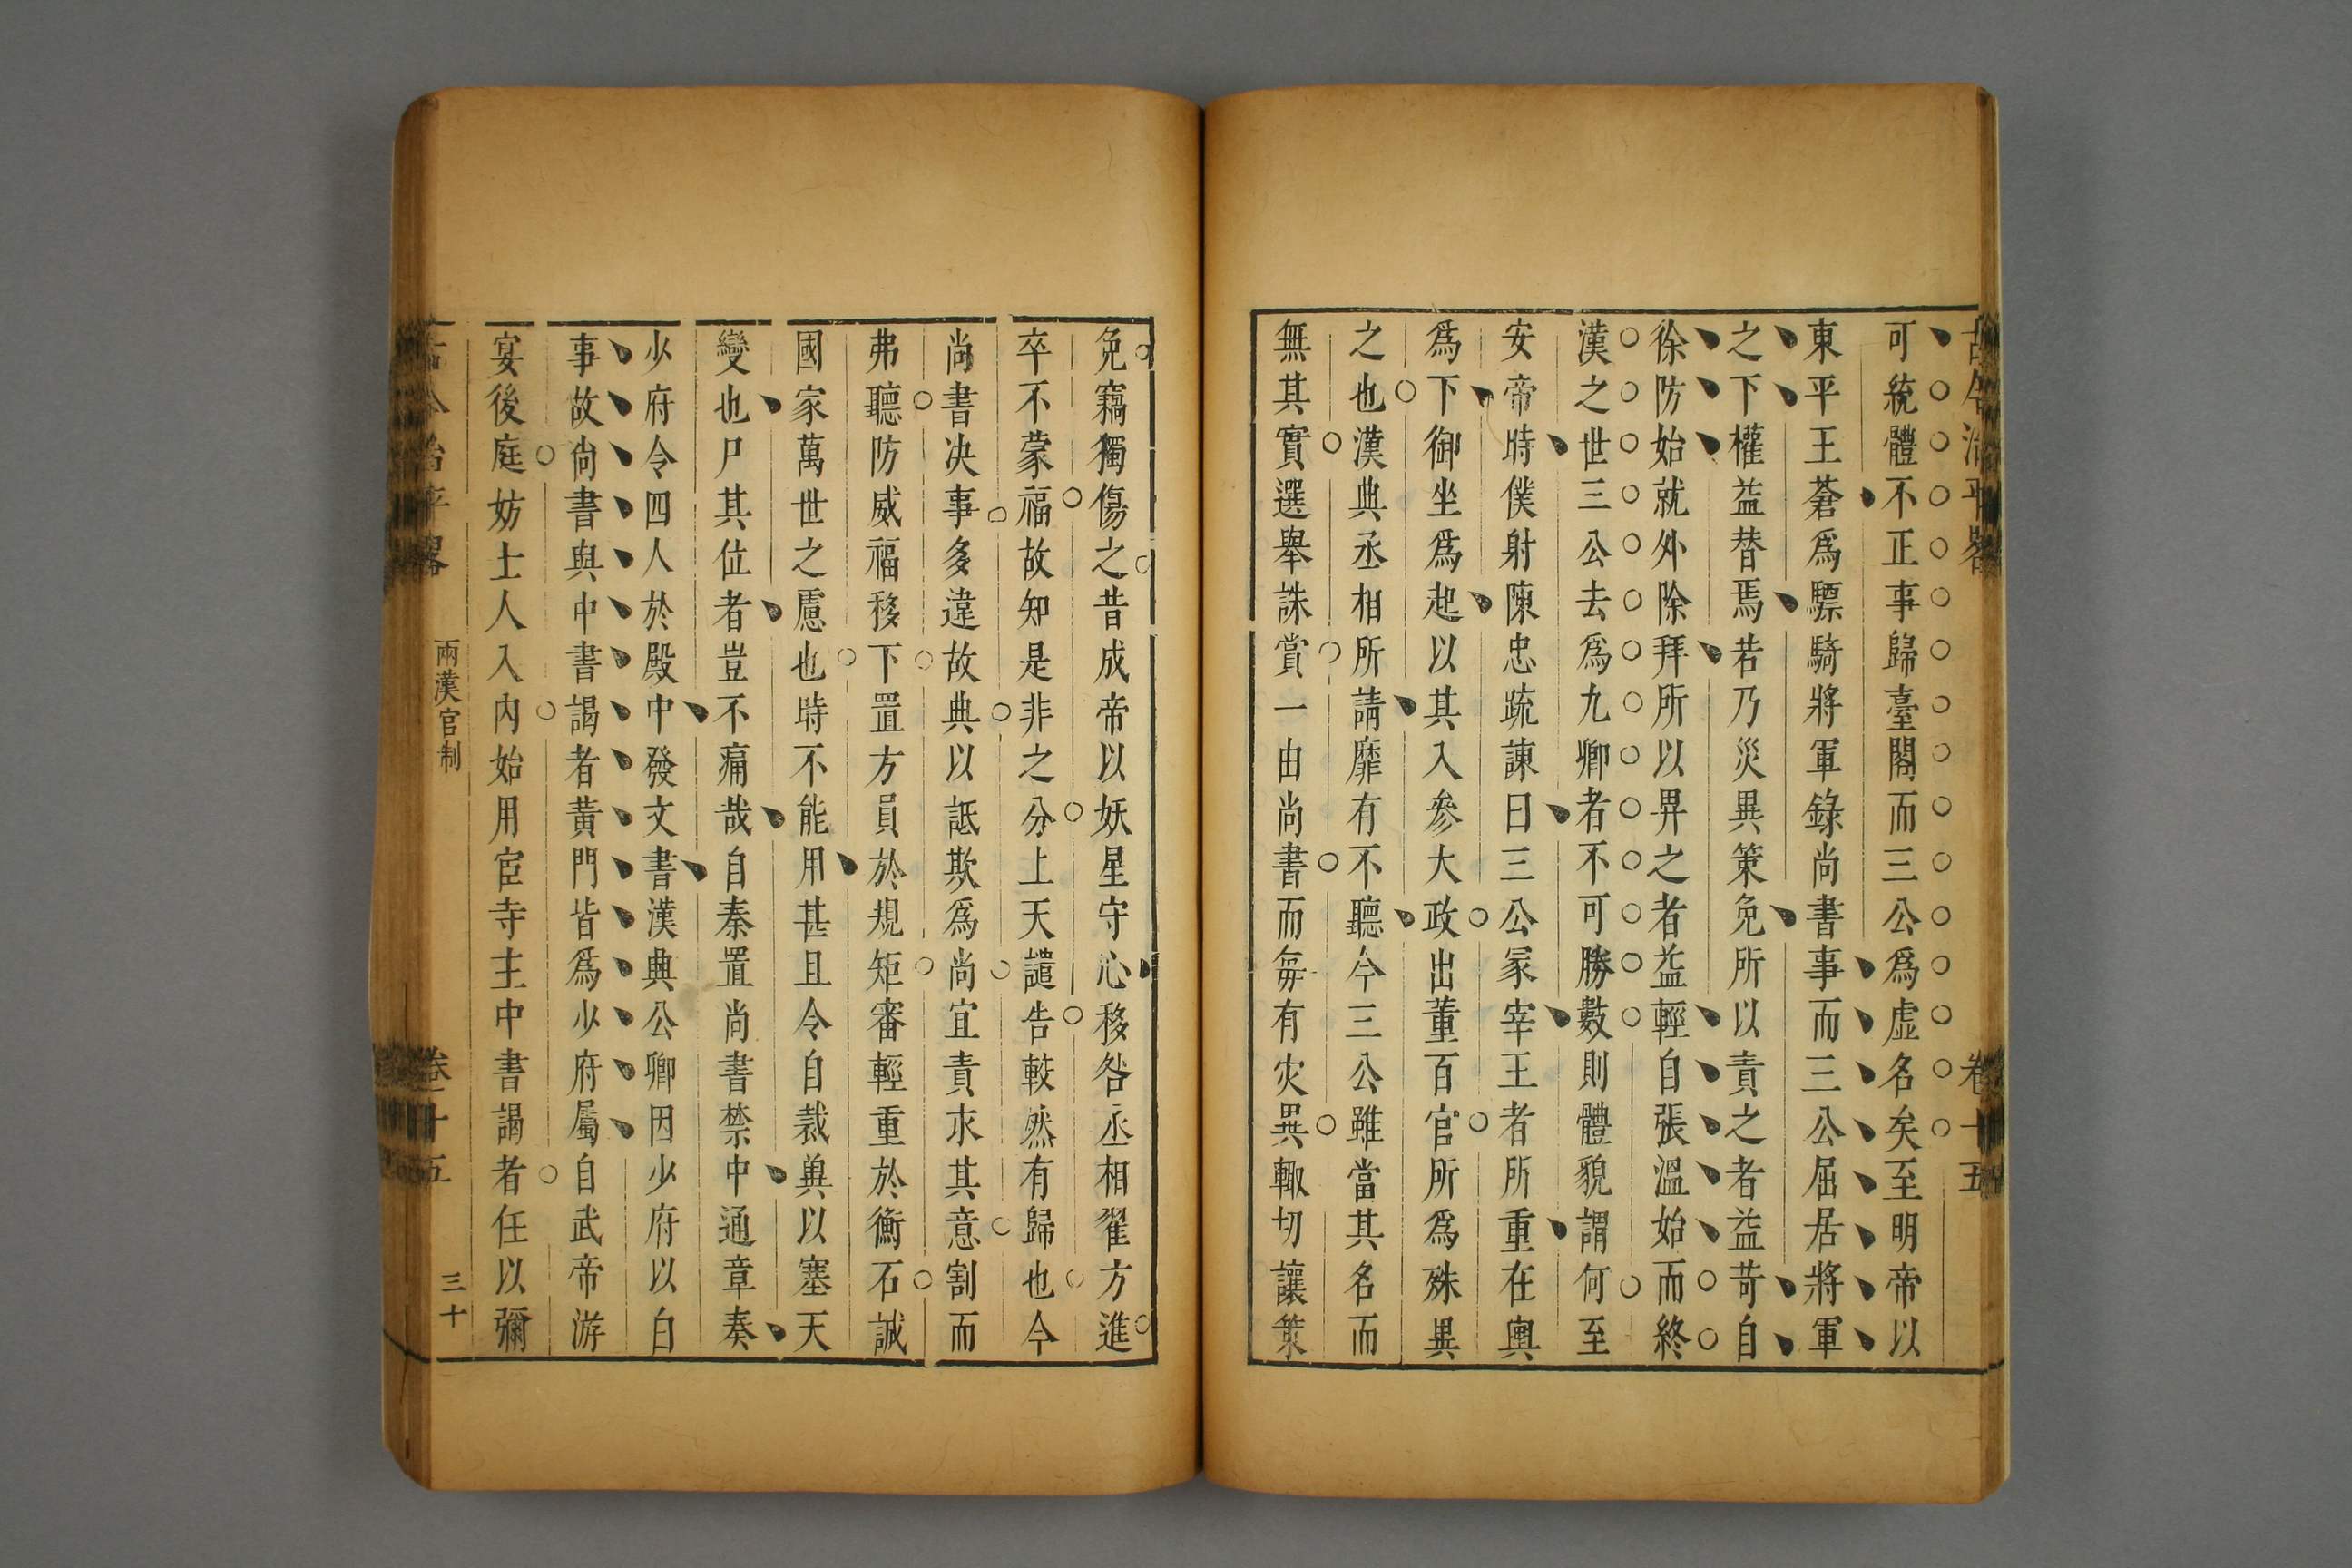 古今治平畧
卷十五
可統體不正事歸臺閣而三公爲虛名矣至明帝以
東平王蒼爲驃騎將軍錄尚書事而三公屈居將軍
之下權益替焉若乃災異策免所以責之者益苛自
徐防始就外除拜所以畀之者益輕自張溫始而終
漢之世三公去爲九卿者不可勝數則體貌謂何至
安帝時僕射陳忠疏諫曰三公冢宰王者所重在輿
爲下御坐爲起以其入參大政出董百官所爲殊異
之也漢典丞相所請靡有不聽今三公雖當其名而
無其實選舉誅賞一由尚書而每有灾異輙切讓策
免竊獨傷之昔成帝以妖星守心移咎丞相翟方進
卒不蒙福故知是非之分上天譴告較然有歸也今
尚書决事多違故典以詆欺爲尚宜責求其意割而
弗聽防威福移下置方員於規矩審輕重於衡石誠
國家萬世之慮也時不能用甚且令自裁兾以塞天
變也尸其位者豈不痛哉自秦置尚書禁中通章奏
少府令四人於殿中發文書漢典公卿因少府以白
事故尚書與中書謁者黃門皆爲少府屬自武帝游
宴後庭妨士人入內始用宦寺主中書謁者任以彌
古今治平畧
兩漢官制
卷十五
三十